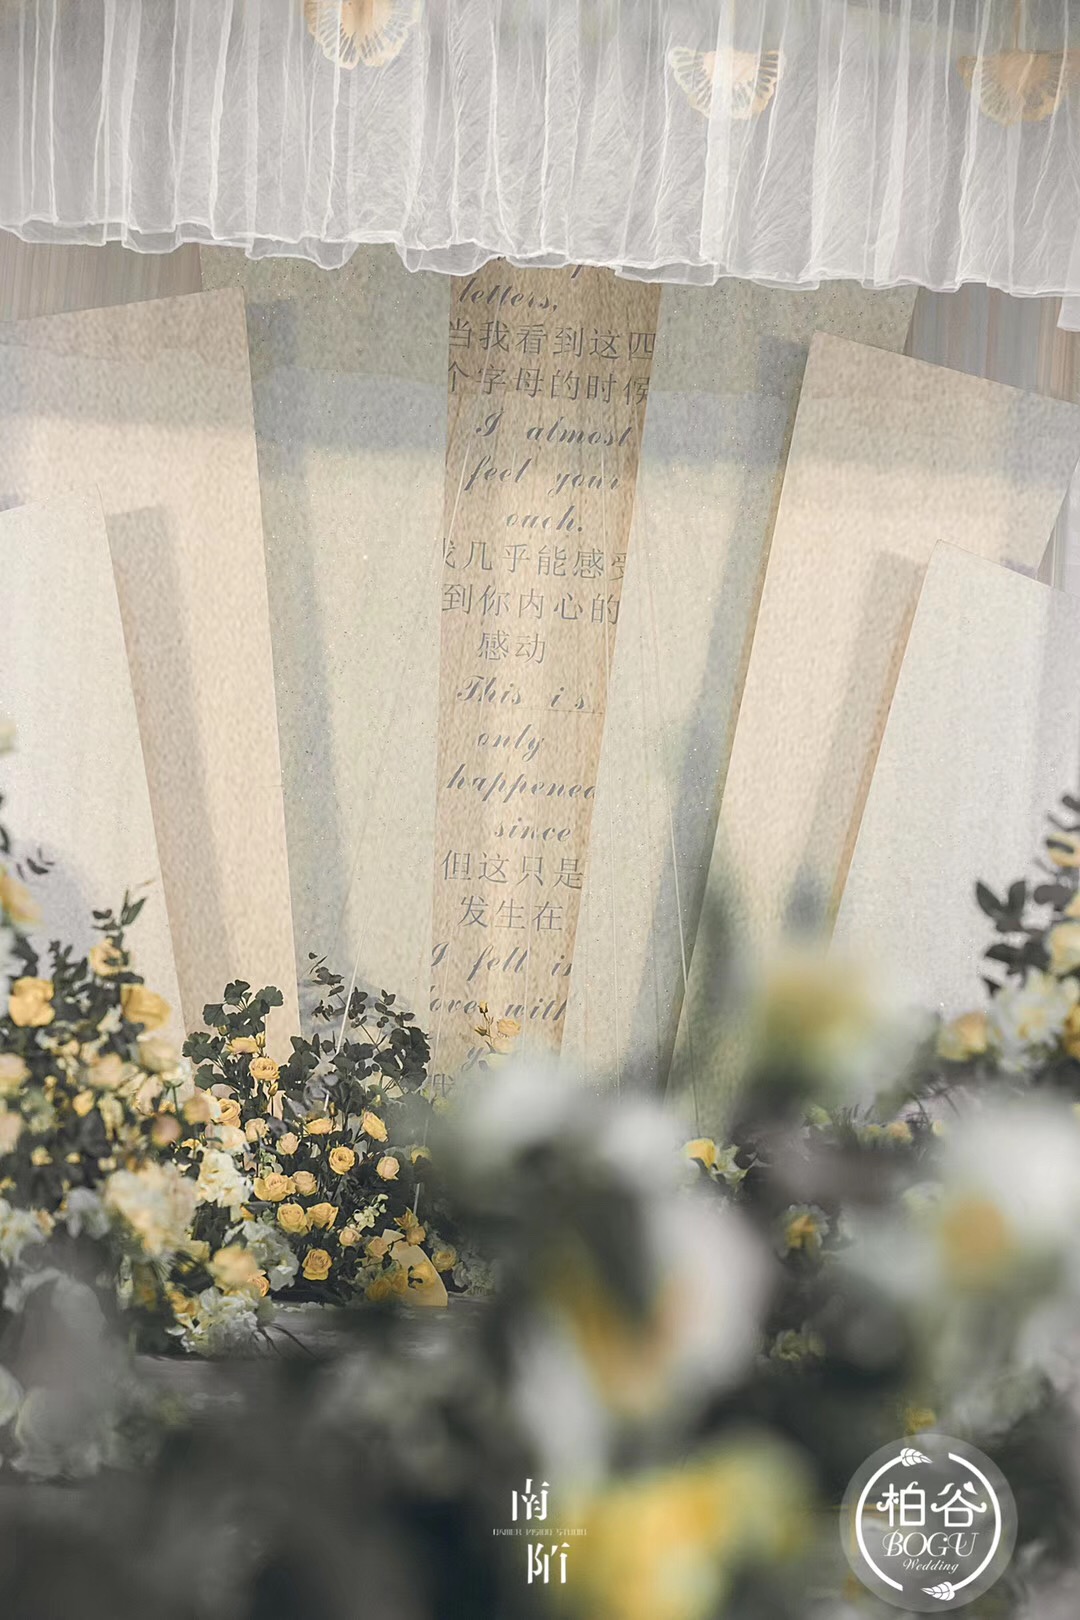 letters,
当我看到这四
个字母的时候
I almost
feel your
ouch.
我几乎能感受
到你内心的
感动
This is
only
happened
since
但这只是
发生在
I fell in
love with
y
我
南
陌
柏谷
BOGU
Wedding